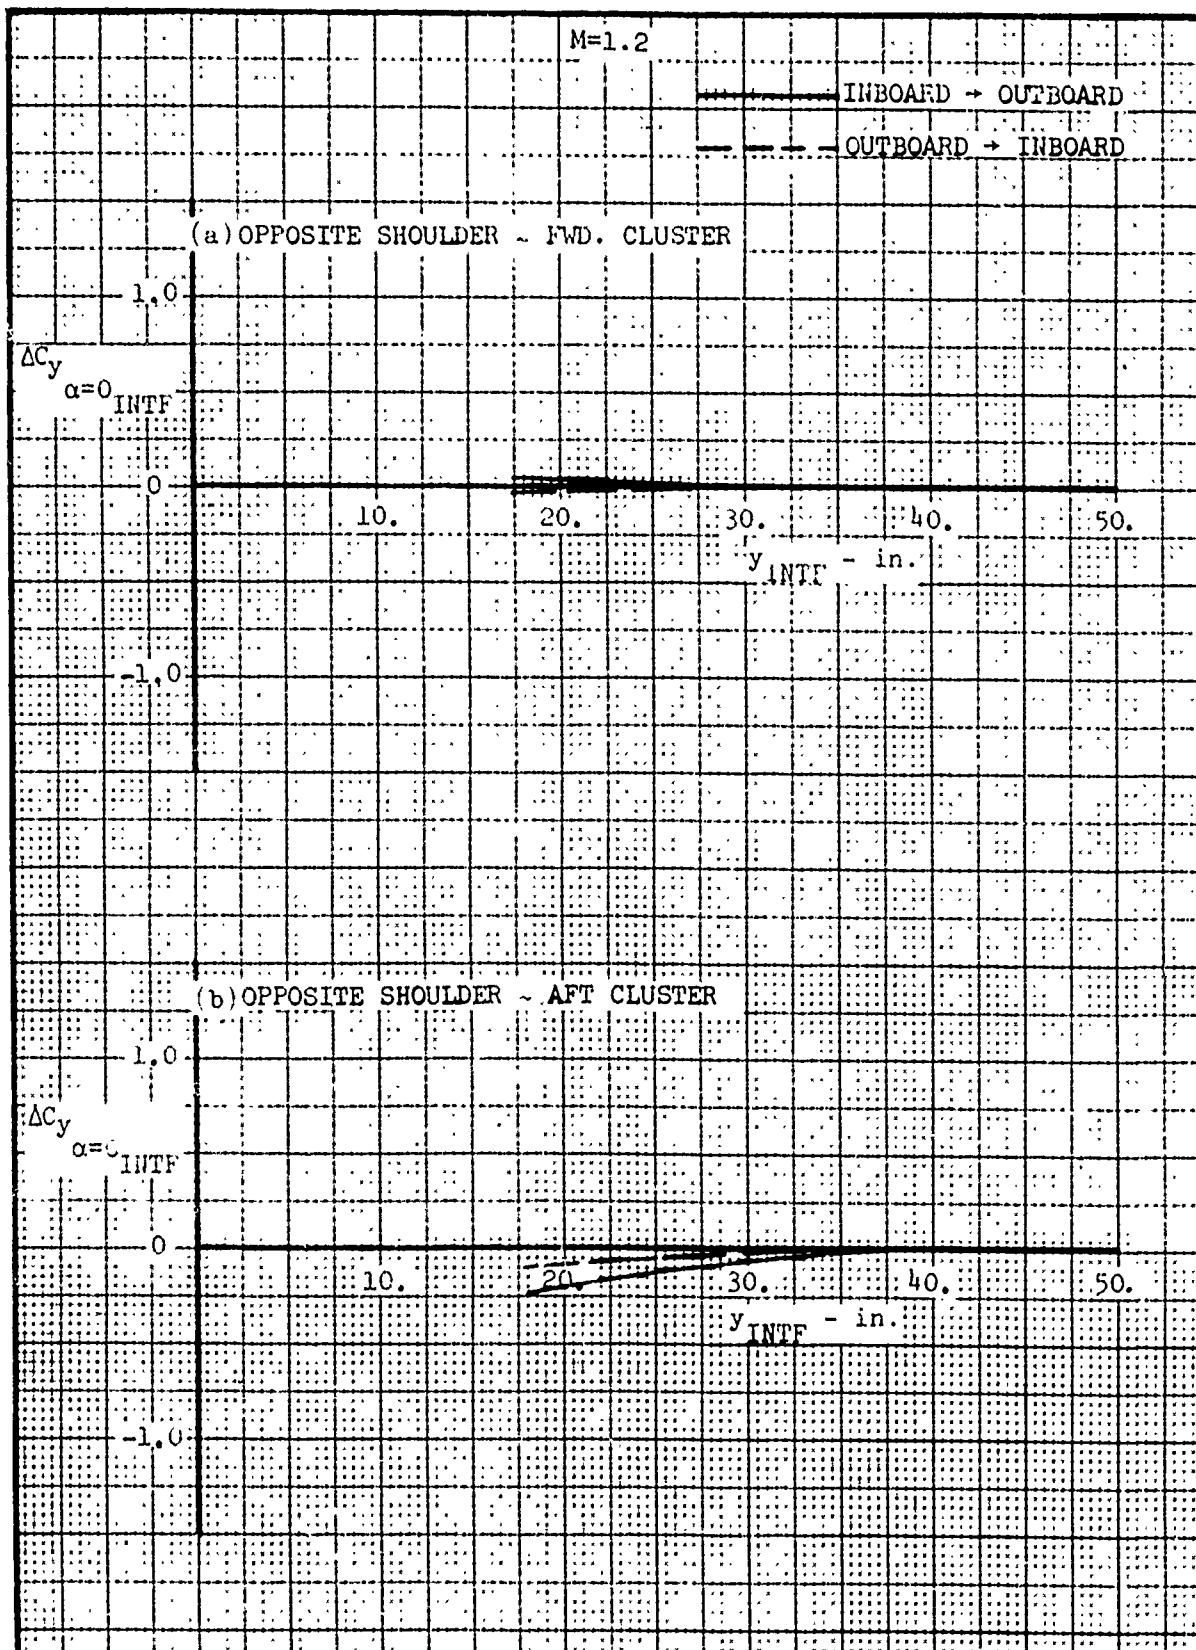 M=1.2
INBOARD → OUTBOARD
OUTBOARD → INBOARD
(a) OPPOSITE SHOULDER ~ FWD. CLUSTER
1.0
ΔCy α=0 INTF
0
10. 20. 30. 40. 50.
yINTF - in.
-1.0
(b) OPPOSITE SHOULDER ~ AFT CLUSTER
1.0
ΔCy α=0 INTF
0
10. 20. 30. 40. 50.
yINTF - in.
-1.0